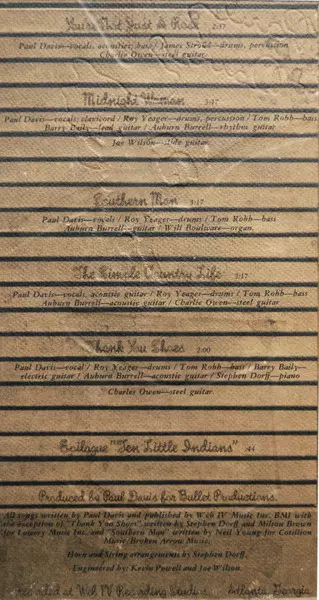 You're Not Just A Rose 2:37
Paul Davis—vocals, acoustics, bass / James Stroud—drums, percussion
Charlie Owen—steel guitar
Midnight Woman 3:17
Paul Davis—vocals, clavicord / Roy Yeager—drums, percussion / Tom Robb—bass
Barry Baily—lead guitar / Auburn Burrell—rhythm guitar
Joe Wilson—slide guitar
Southern Man 5:17
Paul Davis—vocals / Roy Yeager—drums / Tom Robb—bass
Auburn Burrell—guitar / Will Boulware—organ.
The Simple Country Life 3:17
Paul Davis—vocals, acoustic guitar / Roy Yeager—drums / Tom Robb—bass
Auburn Burrell—acoustic guitar / Charlie Owen—steel guitar
Thank You Shoes 2:00
Paul Davis—vocal / Roy Yeager—drums / Tom Robb—bass / Barry Baily—
electric guitar / Auburn Burrell—acoustic guitar / Stephen Dorff—piano
Charles Owen—steel guitar.
Epilogue "Ten Little Indians" :44
Produced by Paul Davis for Bullet Productions.
All songs written by Paul Davis and published by Web IV Music Inc. BMI with
the exception of "Thank You Shoes" written by Stephen Dorff and Milton Brown
for Lowery Music Inc. and "Southern Man" written by Neil Young for Cotillion
Music/Broken Arrow Music.
Horn and String arrangements by Stephen Dorff.
Engineered by: Kevin Powell and Joe Wilson.
Recorded at Web IV Recording Studios Atlanta, Georgia